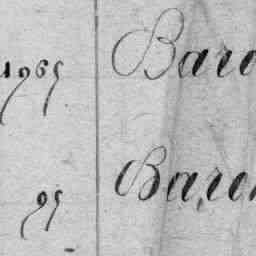 1965 Baro
95 Baren